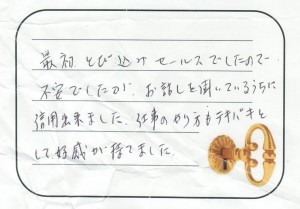 最初 とび込み セールスでしたので
不安でしたが、お話しを聞いているうちに
信用出来ました。仕事のやり方もテキパキと
して好感が持てました。